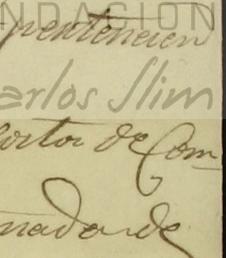 NDACION
pertenecen
arlos Slim
de Com
nado de